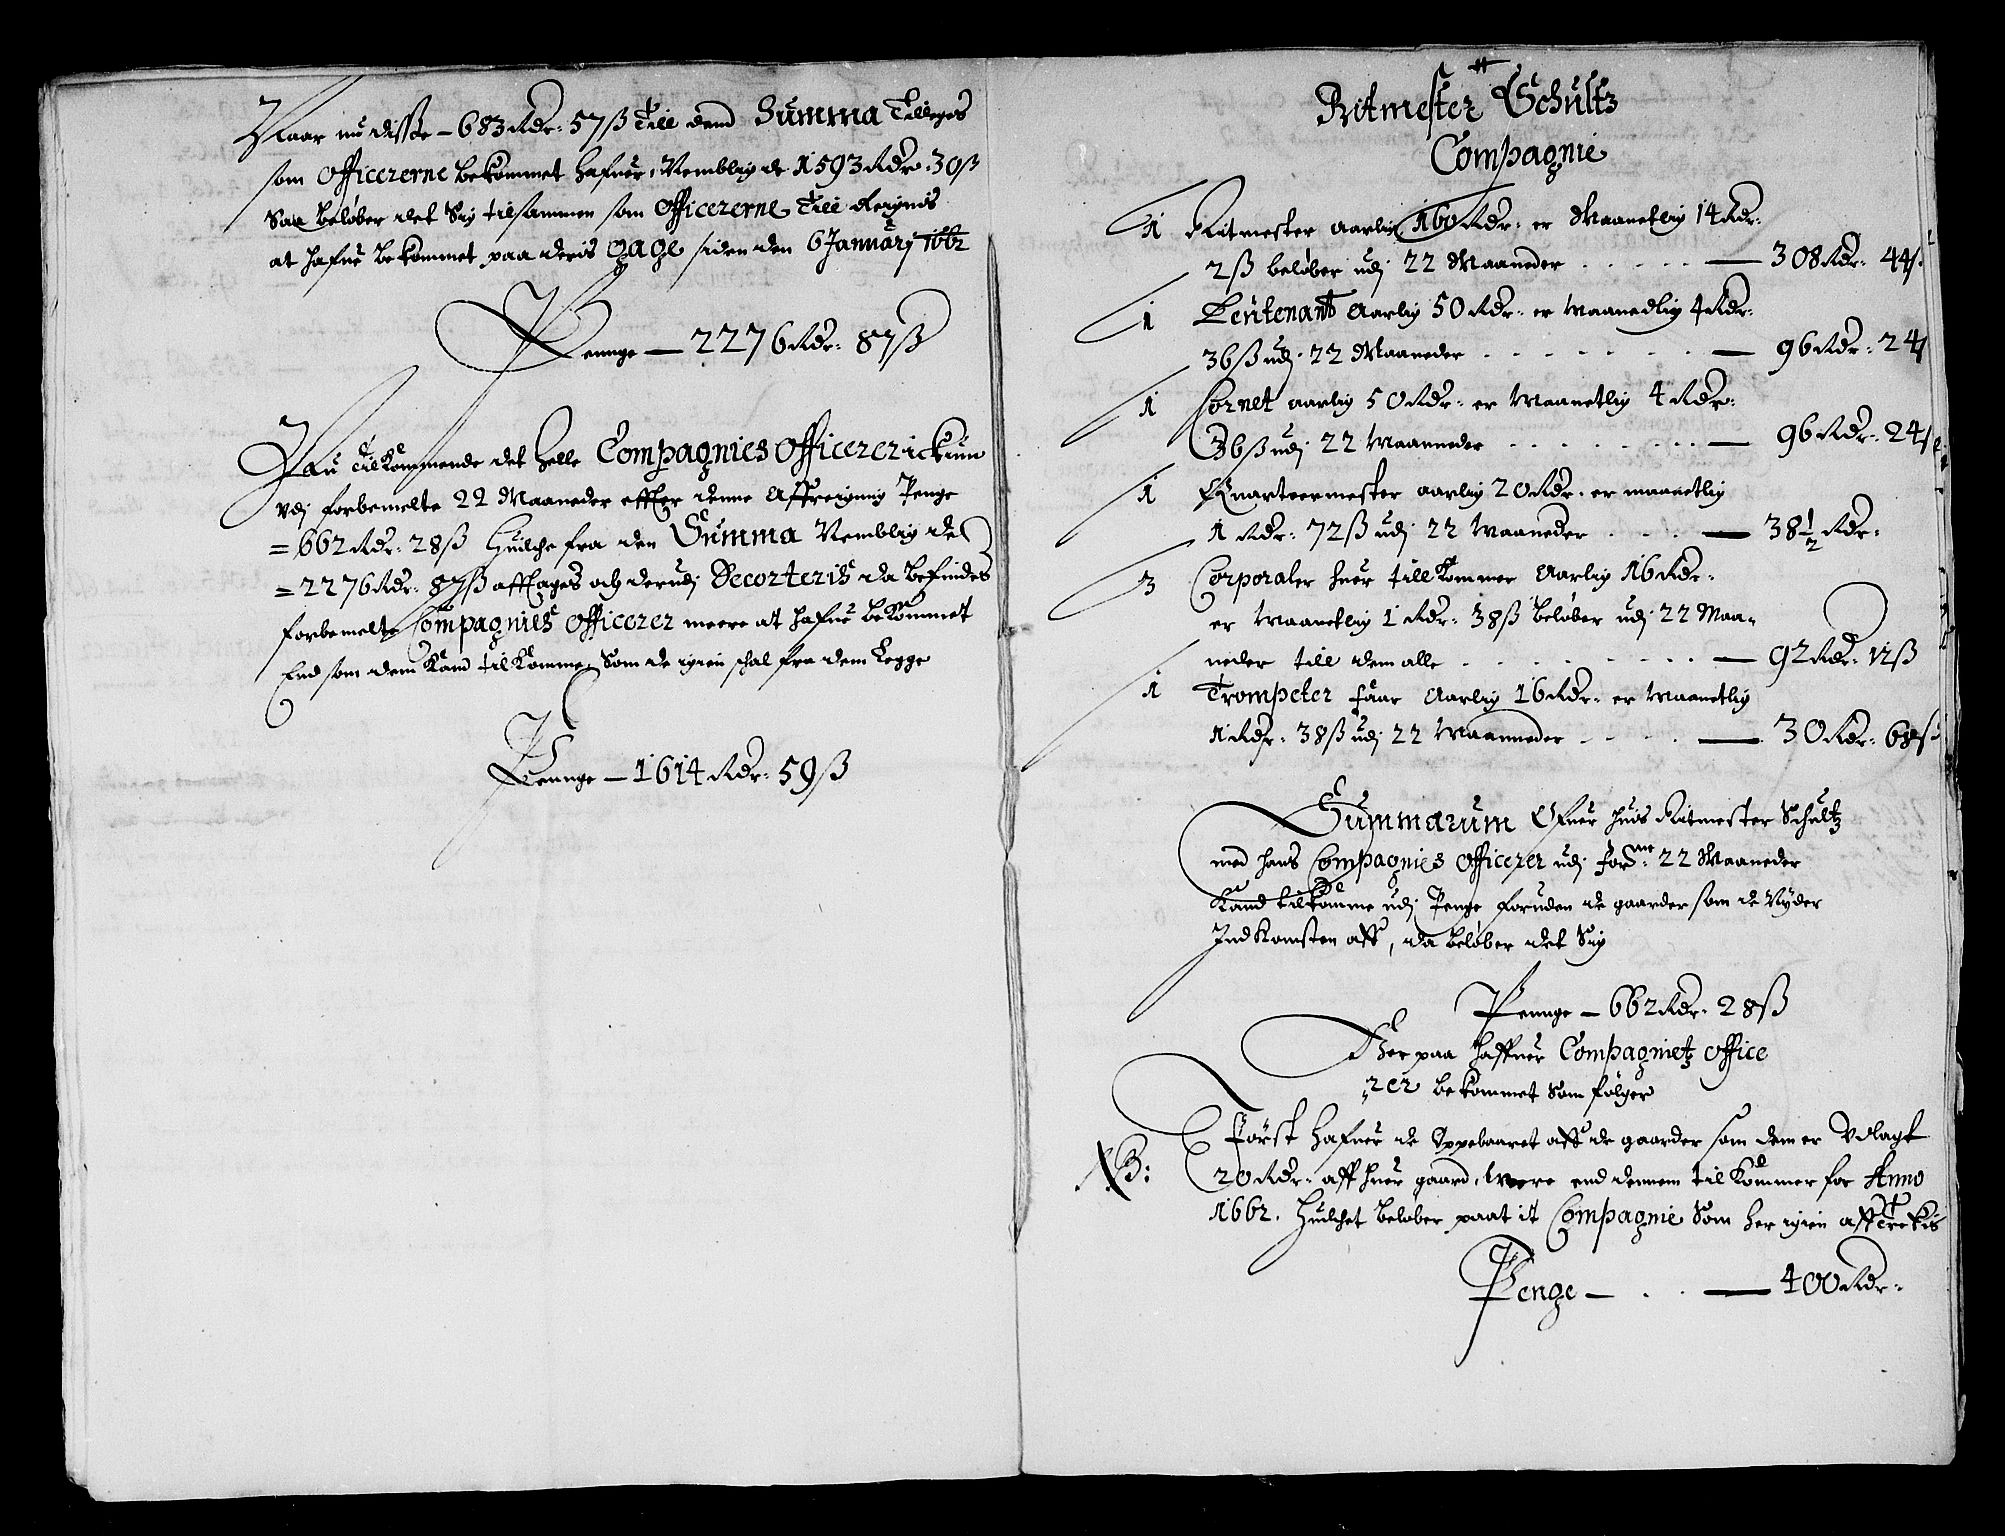 Naar nu disse – 683 Rdr: 57 ß Till dend Summa Tilleges
som Officererne bekommet hafuer, Nemblig de 1593 Rdr: 30 ß
Saa beløber det Sig tilsammen som Officererne Till Reignis
at hafue bekommet paa deris gage siden den 6 Januarj 1662
Pennge — 2276 Rdr: 87 ß
Nu Tilkommende det helle Compagnies Officerer ickun
vdj forbemelte 22 Maaneder effter denne Affreigning Penge
= 662 Rdr: 28 ß Huilche fra den Summa Nemblig de
= 2276 Rdr: 87 ß afftages och derudj Decorteris da befindes
forbemelte Compagnies Officerer meere at hafue bekommet
End som dem Kand tilkomme, Som de igien schal fra dem Legge
Pennge — 1614 Rdr: 59 ß
Ritmester Schultz
Compagnie
1 Ritmester aarlig 160 Rdr: er Maanetlig 14 Rdr:
2 ß beløber udj 22 Maaneder . . . . . — 308 Rdr: 44 ß
1 Leutenant Aarlig 50 Rdr: er Maanedlig 4 Rdr:
36 ß udj 22 Maaneder . . . . . . . — 96 Rdr: 24
1 Cornet aarlig 50 Rdr: er Maanetlig 4 Rdr:
36 ß udj 22 Maanneder . . . . . . . — 96 Rdr: 24
1 Quarteermester aarlig 20 Rdr: er maanetlig
1 Rdr: 72 ß udj 22 Maaneder . . . . — 38½ Rdr:
3 Corporaler huer tillkommer Aarlig 16 Rdr:
er Maanetlig 1 Rdr: 38 ß beløber udj 22 Maa=
neder till dem alle . . . . . . . . — 92 Rdr: 12 ß
1 Trompeter faar Aarlig 16 Rdr: er Maanetlig
1 Rdr: 38 ß udj 22 Maanneder . . . . — 30 Rdr: 68 ß
Summarum Ofuer huis Ritmester Schultz
med hans Compagnies Officerer udj for.ne 22 Maaneder
Kand tilkomme udj Penge foruden de gaarder som de Nyder
Indkomsten aff, da beløber det Sig
Pennge — 662 Rdr: 28 ß
Her paa haffuer Compagnietz Office
rer bekommet Som følger
NB: Først hafuer de Oppebaaret aff de gaarder som dem er Vdlagt
20 Rdr: aff huer gaard, Mere end dennem tilkommer for Anno
1662. Huilchet beløber paa it Compagnie Som her igien afftrekis
Penge — . . — 400 Rdr: